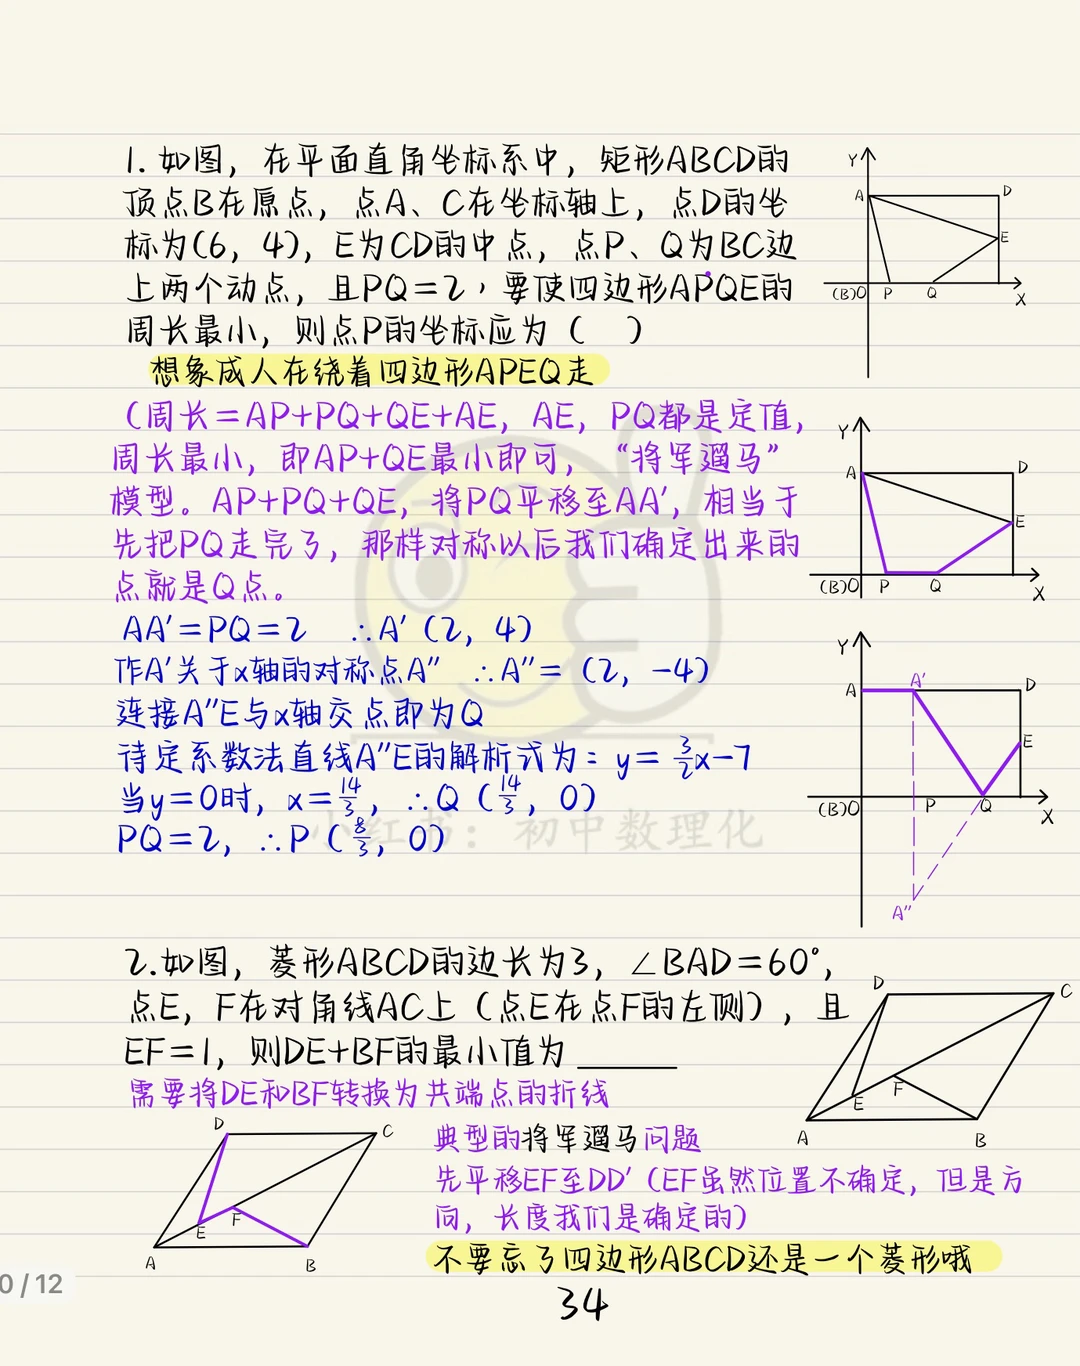 1. 如图，在平面直角坐标系中，矩形ABCD的
顶点B在原点，点A、C在坐标轴上，点D的坐
标为(6，4)，E为CD的中点，点P、Q为BC边
上两个动点，且PQ=2，要使四边形APQE的
周长最小，则点P的坐标应为（　）
想象成人在绕着四边形APEQ走
（周长=AP+PQ+QE+AE，AE，PQ都是定值，
周长最小，即AP+QE最小即可，“将军遛马”
模型。AP+PQ+QE，将PQ平移至AA′，相当于
先把PQ走完了，那样对称以后我们确定出来的
点就是Q点。
AA′=PQ=2 ∴A′（2，4）
作A′关于x轴的对称点A″ ∴A″=（2，-4）
连接A″E与x轴交点即为Q
待定系数法直线A″E的解析式为：y=3/2x-7
当y=0时，x=14/3，∴Q（14/3，0）
PQ=2，∴P（8/3，0）
小红书：初中数理化
Y
A
D
E
(B)O
P
Q
X
Y
A
D
E
(B)O
P
Q
X
Y
A
A′
D
E
(B)O
P
Q
X
A″
2.如图，菱形ABCD的边长为3，∠BAD=60°，
点E，F在对角线AC上（点E在点F的左侧），且
EF=1，则DE+BF的最小值为______
需要将DE和BF转换为共端点的折线
D
C
E
F
A
B
D
C
E
F
A
B
典型的将军遛马问题
先平移EF至DD′（EF虽然位置不确定，但是方
向，长度我们是确定的）
不要忘了四边形ABCD还是一个菱形哦
34
0/12